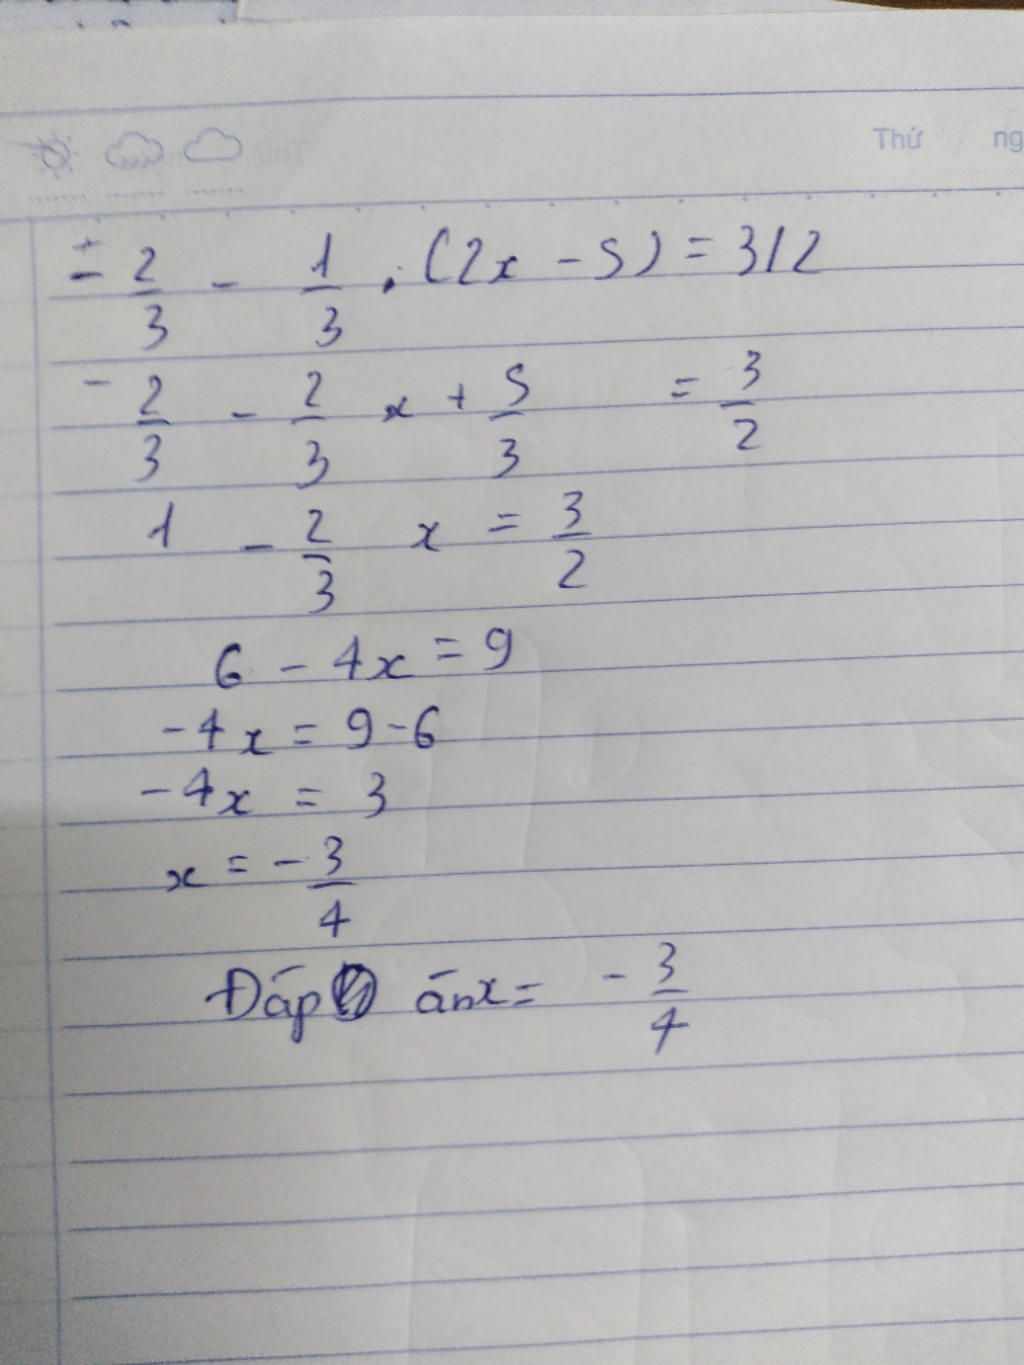 Thứ ng
- 2/3 - 1/3 . (2x - 5) = 3/2
- 2/3 - 2/3 x + 5/3 = 3/2
1 - 2/3 x = 3/2
6 - 4x = 9
-4x = 9-6
-4x = 3
x = - 3/4
Đáp án x = - 3/4